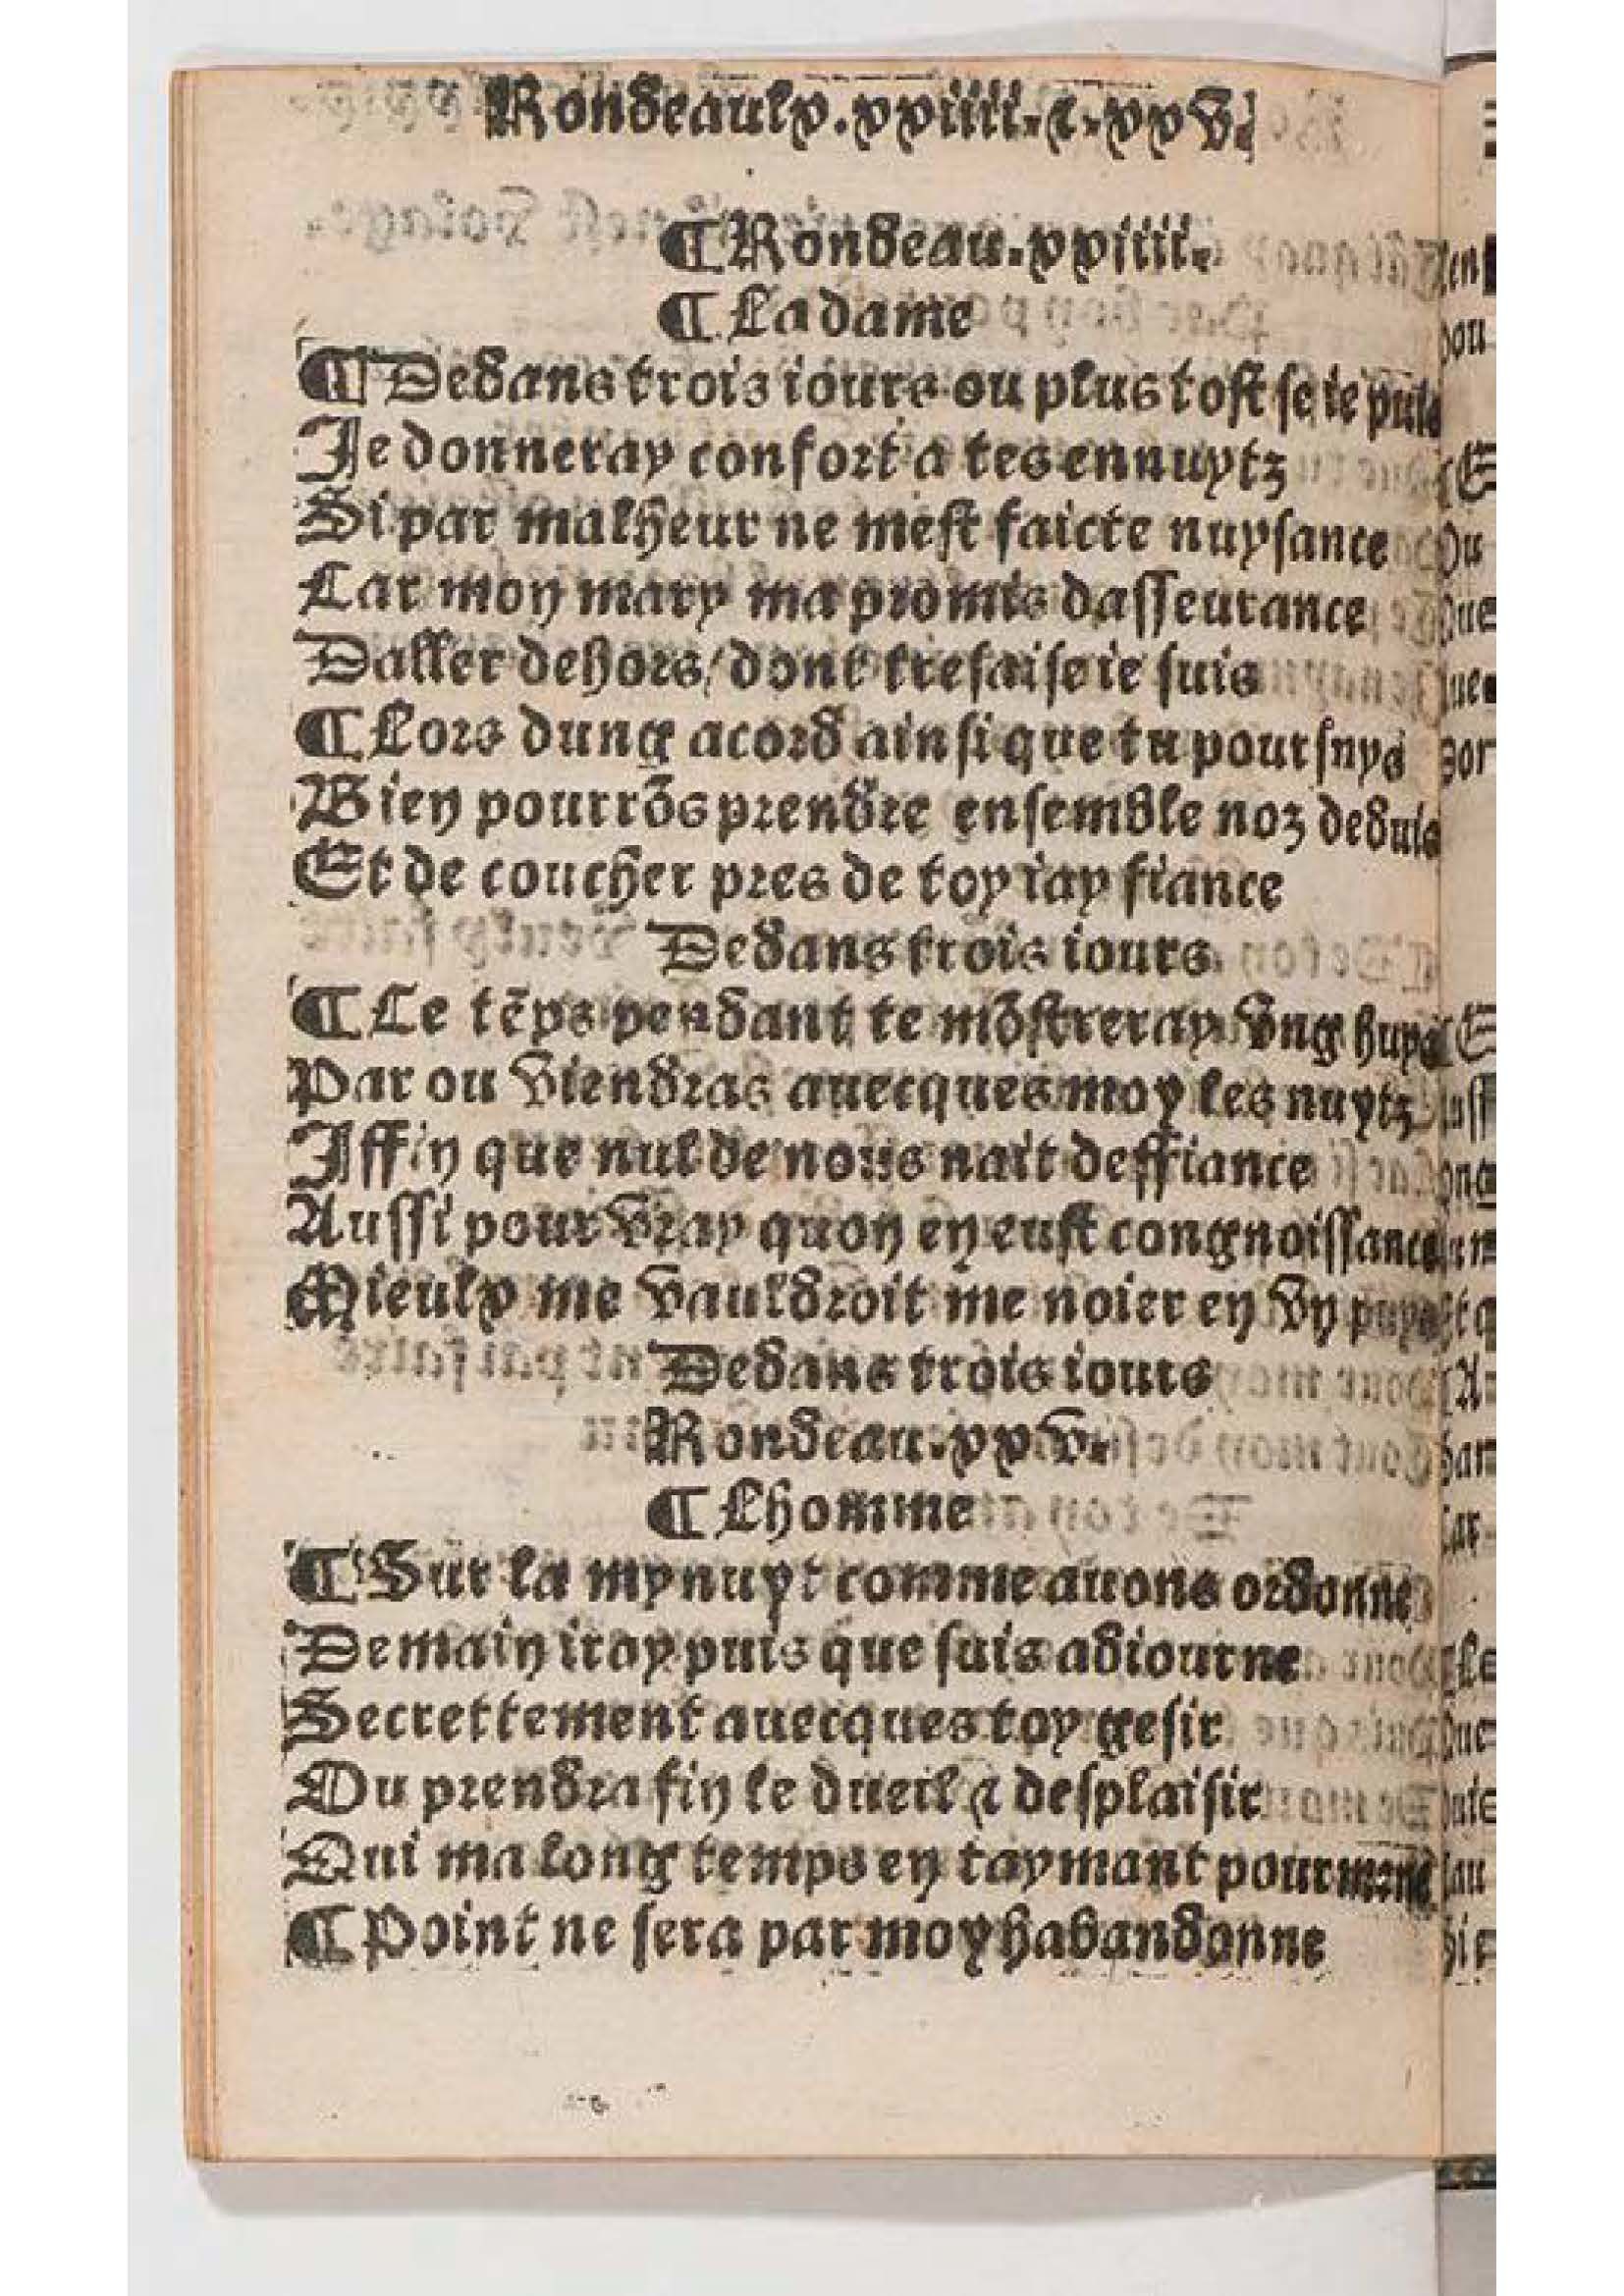 Rondeaulx.xxiiii.⁊.xxv.
¶Rondeau.xxiiii.
¶La dame
¶Dedans trois iours ou plus tost se ie puis
Je donneray confort a tes ennuytz
Si par malheur ne mest faicte nuysance
Car mon mary ma promis dasseurance
Daller dehors/dont tresaise ie suis
¶Lors dung acord ainsi que tu poursuys
Bien pourrõs prendre ensemble noz deduis
Et de coucher pres de toy iay fiance
Dedans trois iours
¶Le tẽps pendant te mõstreray vng huys
Par ou viendras auecques moy les nuytz
Affin que nul de nous nait deffiance
Aussi pour vray quon en eust congnoissance
Mieulx me vauldroit me noier en vn puys
Dedans trois iours
Rondeau.xxv.
¶Lhomme
¶Sur la mynuyt comme auons ordonne
Demain iray puis que suis adiourne
Secrettement auecques toy gesir
Ou prendra fin le dueil ⁊ desplaisir
Qui ma long temps en taymant pourmene
¶Point ne sera par moy habandonne